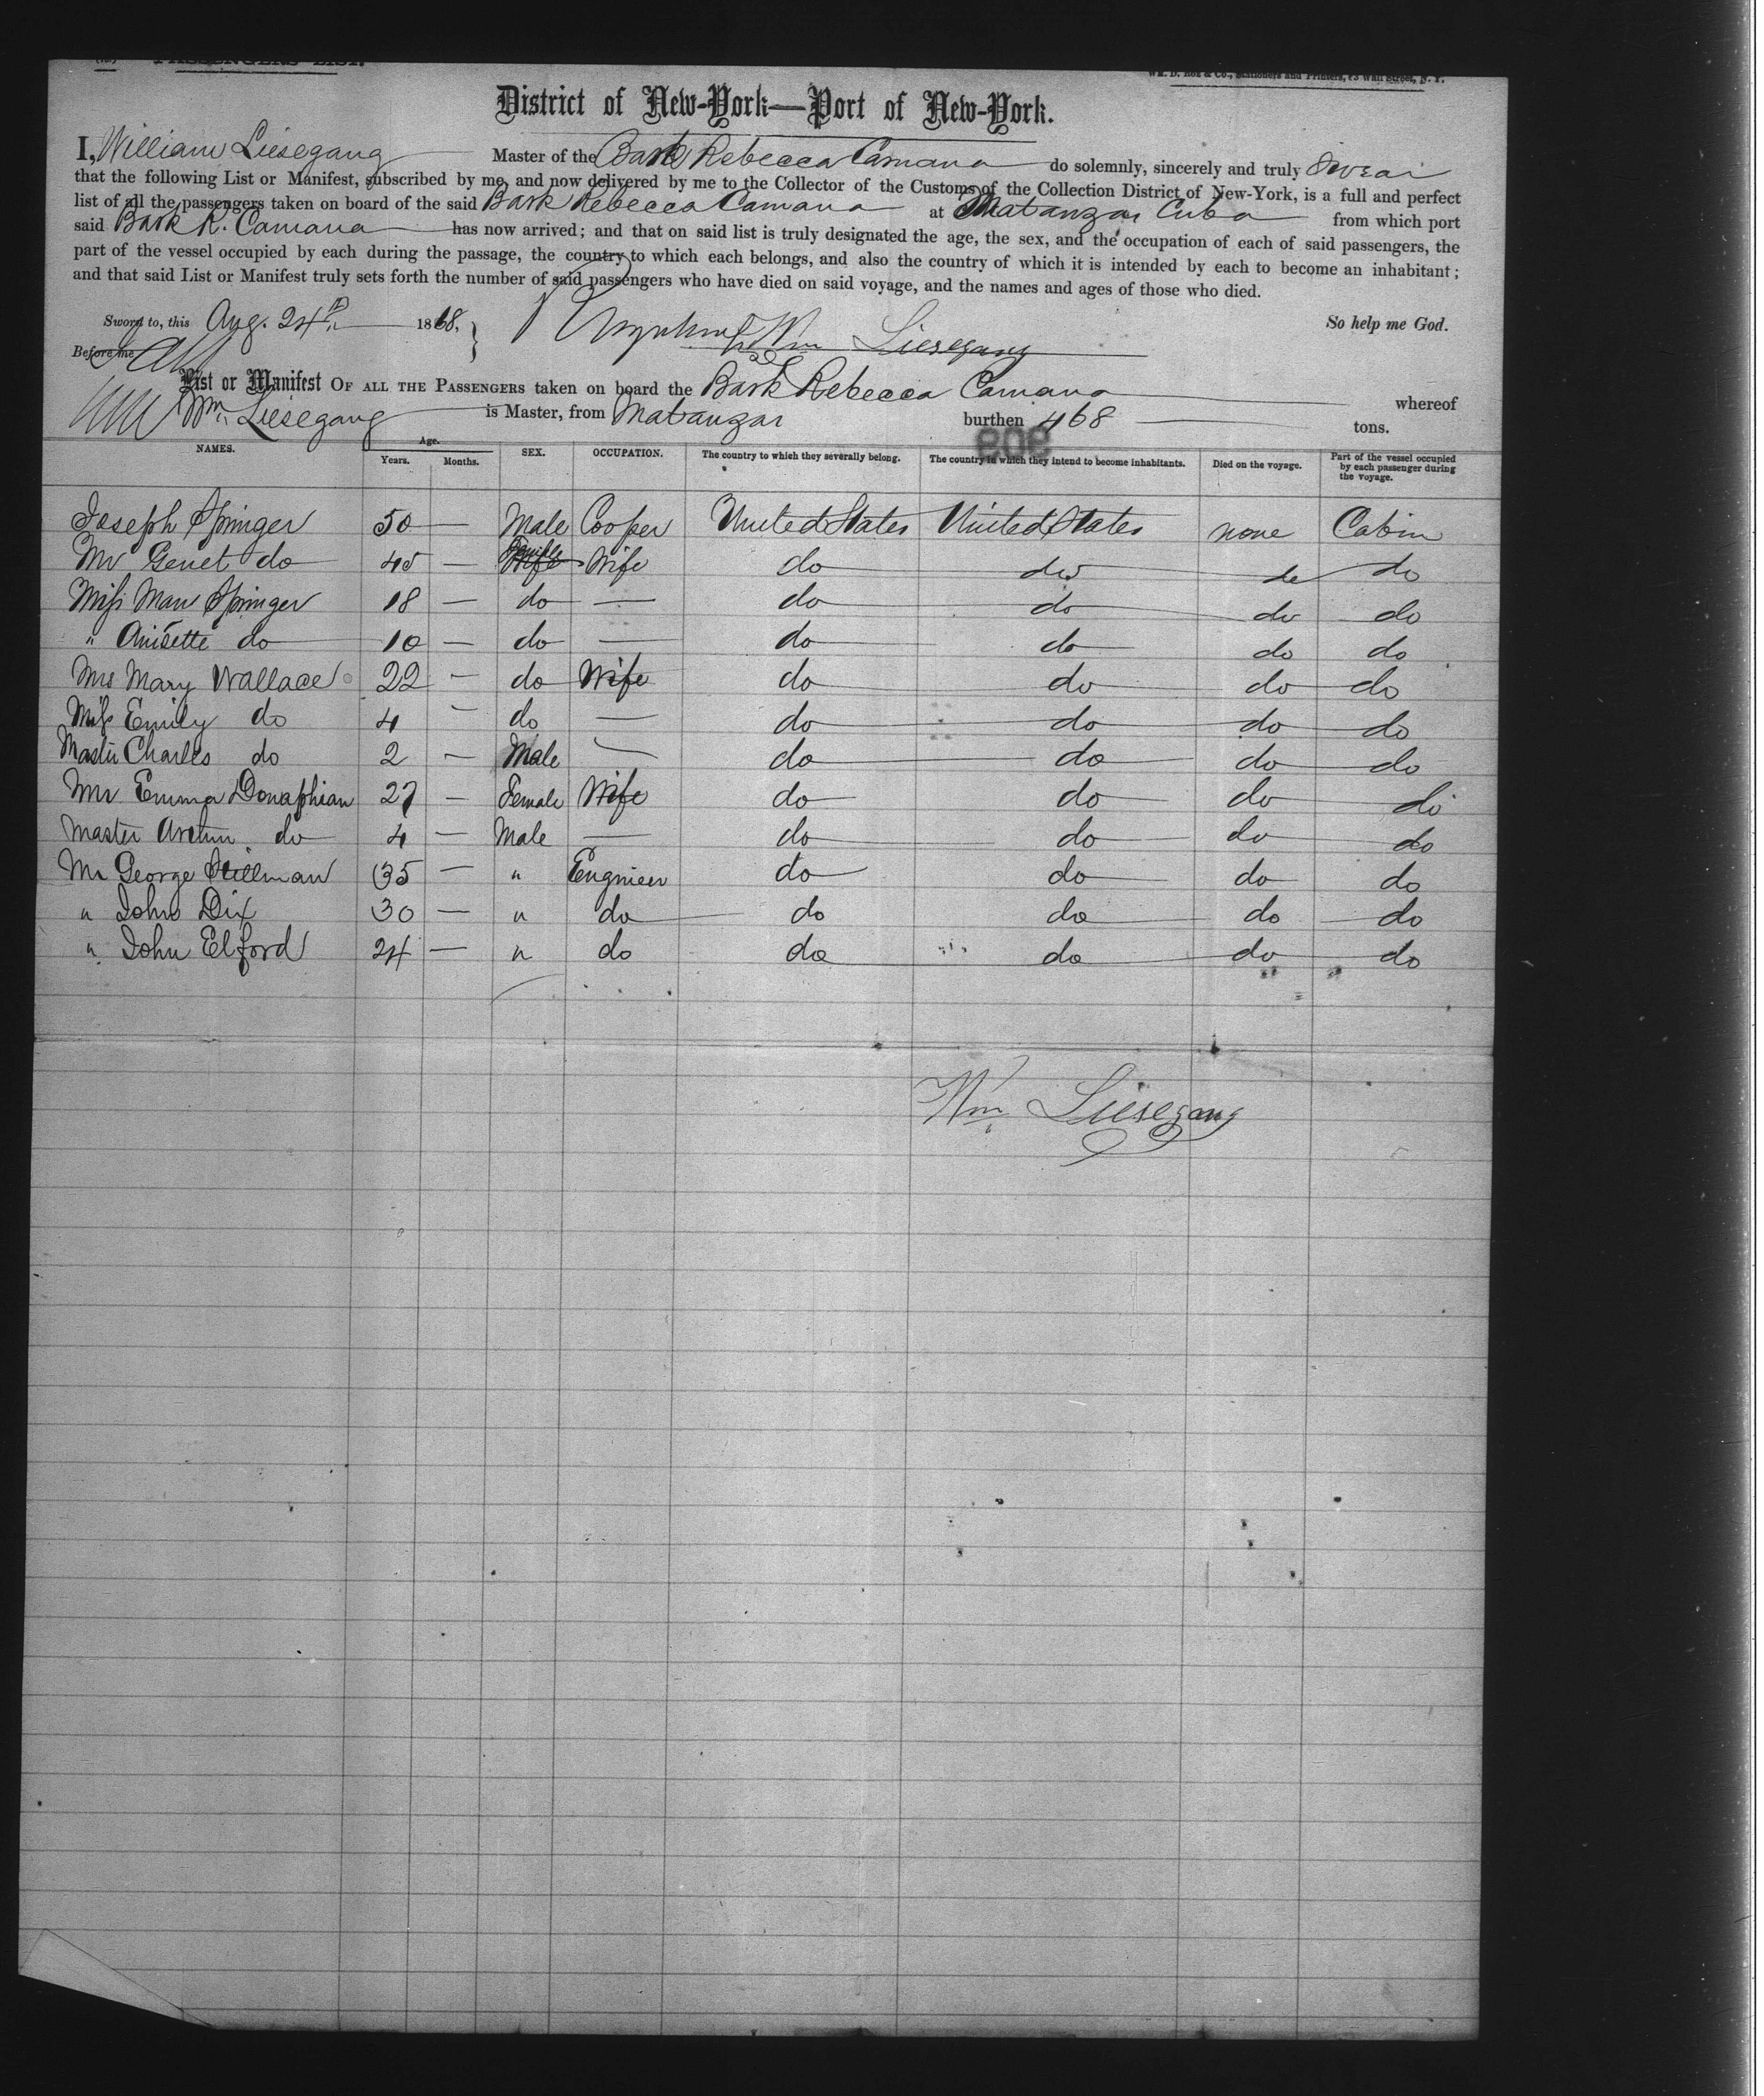 PASSENGERS LIST.
WM. D. ROE & CO., Stationers and Printers, 83 Wall Street, N. Y.
District of New-York—Port of New-York.
I, William Liesegang Master of the Bark Rebecca Camana do solemnly, sincerely and truly swear
that the following List or Manifest, subscribed by me, and now delivered by me to the Collector of the Customs of the Collection District of New-York, is a full and perfect
list of all the passengers taken on board of the said Bark Rebecca Camana at Matanzas Cuba from which port
said Bark R. Camana has now arrived; and that on said list is truly designated the age, the sex, and the occupation of each of said passengers, the
part of the vessel occupied by each during the passage, the country to which each belongs, and also the country of which it is intended by each to become an inhabitant;
and that said List or Manifest truly sets forth the number of said passengers who have died on said voyage, and the names and ages of those who died.
Sworn to, this Aug. 24th 1868, Wm Liesegang So help me God.
Before me
List or Manifest OF ALL THE PASSENGERS taken on board the Bark Rebecca Camana whereof
Wm Liesegang is Master, from Matanzas burthen 468 tons.
909
NAMES. Age. Years. Months. SEX. OCCUPATION. The country to which they severally belong. The country in which they intend to become inhabitants. Died on the voyage. Part of the vessel occupied by each passenger during the voyage.
Joseph Springer 50 — Male Cooper United States United States none Cabin
Mrs Genet do 45 — Female Wife do do do do
Miss Mary Springer 18 — do — do do do do
" Anisette do 10 — do — do do do do
Mrs Mary Wallace 22 — do Wife do do do do
Miss Emily do 4 — do — do do do do
Master Charles do 2 — Male — do do do do
Mrs Emma Donaphian 27 — Female Wife do do do do
Master do 4 — Male — do do do do
Mr George Stillman 35 — " Engnieer do do do do
" John Dix 30 — " do do do do do
" John Elford 24 — " do do do do do
Wm Liesegang